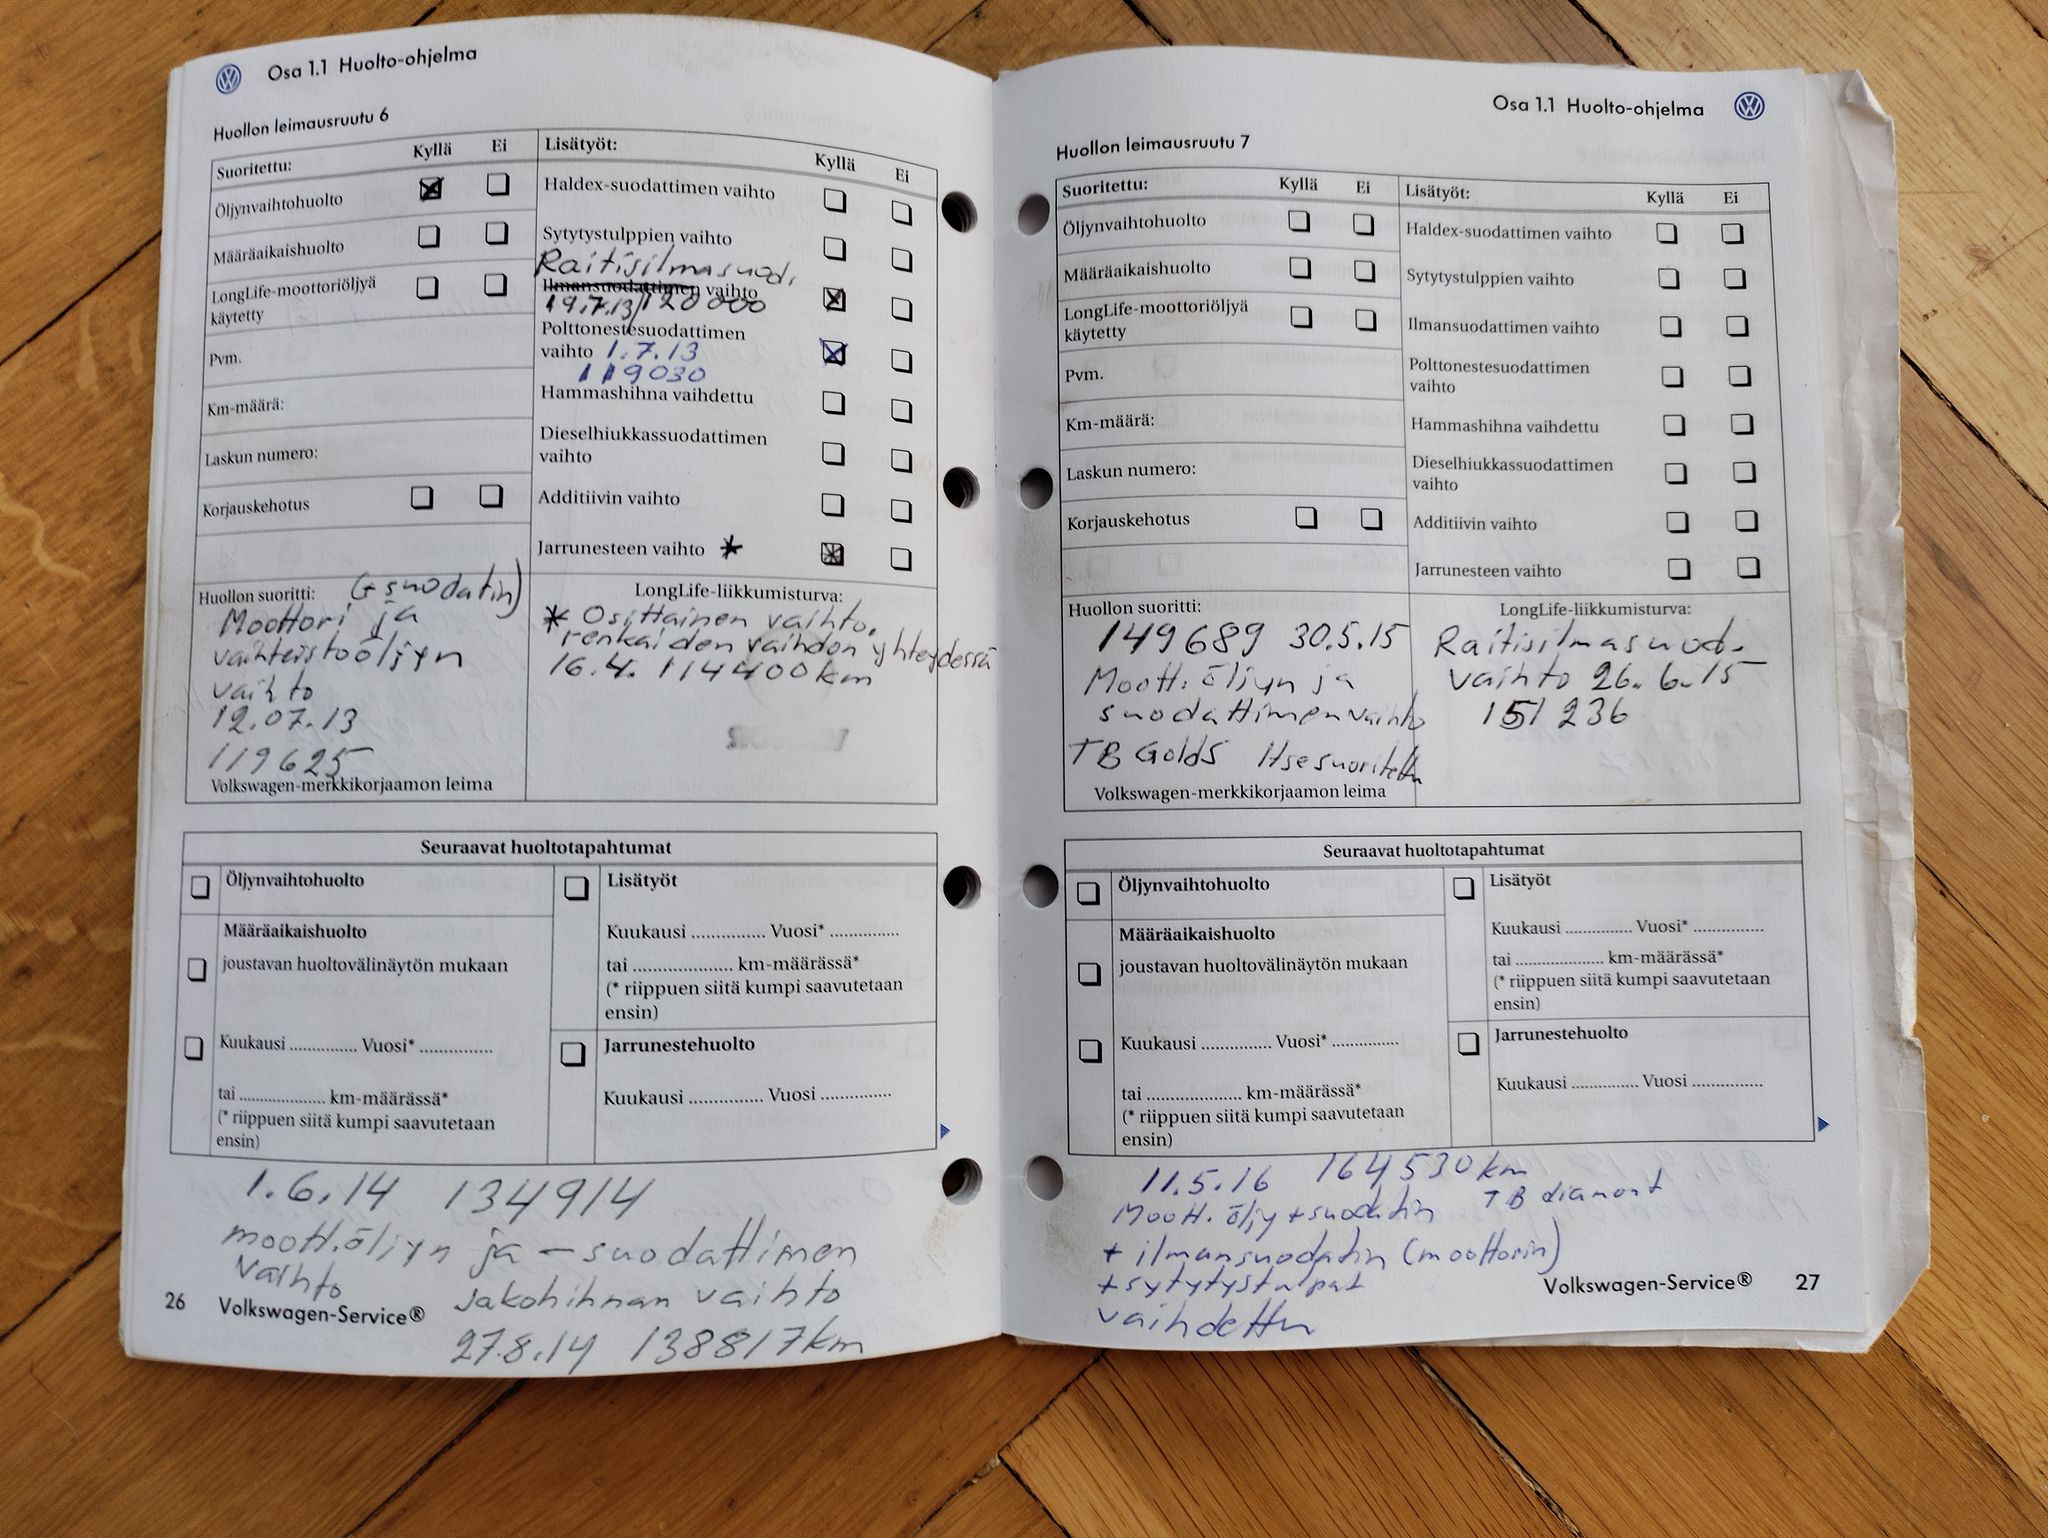 Osa 1.1 Huolto-ohjelma
Huollon leimausruutu 6
Suoritettu: Kyllä Ei
Öljynvaihtohuolto
Määräaikaishuolto
LongLife-moottoriöljyä
käytetty
Pvm.
Km-määrä:
Laskun numero:
Korjauskehotus
Lisätyöt: Kyllä Ei
Haldex-suodattimen vaihto
Sytytystulppien vaihto
Raitisilmasuod.
Ilmansuodattimen vaihto
19.7.13/120000
Polttonestesuodattimen
vaihto 1.7.13
119030
Hammashihna vaihdettu
Dieselhiukkassuodattimen
vaihto
Additiivin vaihto
Jarrunesteen vaihto *
Huollon suoritti: (+suodatin)
Moottori ja
vaihteistoöljyn
vaihto
12.07.13
119625
Volkswagen-merkkikorjaamon leima
LongLife-liikkumisturva:
* Osittainen vaihto,
renkaiden vaihdon yhteydessä
16.4. 114400km
Seuraavat huoltotapahtumat
Öljynvaihtohuolto
Määräaikaishuolto
joustavan huoltovälinäytön mukaan
Kuukausi .............. Vuosi* ...............
tai ...................... km-määrässä*
(* riippuen siitä kumpi saavutetaan
ensin)
Lisätyöt
Kuukausi ............... Vuosi* ..............
tai ..................... km-määrässä*
(* riippuen siitä kumpi saavutetaan
ensin)
Jarrunestehuolto
Kuukausi ............... Vuosi ...............
1.6.14 134914
moott.öljyn ja -suodattimen
vaihto
Jakohihnan vaihto
27.8.14 138817km
26 Volkswagen-Service®
Osa 1.1 Huolto-ohjelma
Huollon leimausruutu 7
Suoritettu: Kyllä Ei
Öljynvaihtohuolto
Määräaikaishuolto
LongLife-moottoriöljyä
käytetty
Pvm.
Km-määrä:
Laskun numero:
Korjauskehotus
Lisätyöt: Kyllä Ei
Haldex-suodattimen vaihto
Sytytystulppien vaihto
Ilmansuodattimen vaihto
Polttonestesuodattimen
vaihto
Hammashihna vaihdettu
Dieselhiukkassuodattimen
vaihto
Additiivin vaihto
Jarrunesteen vaihto
Huollon suoritti:
149689 30.5.15
Moott. öljyn ja
suodattimen vaihto
TB Golds Itsesuoritettu
Volkswagen-merkkikorjaamon leima
LongLife-liikkumisturva:
Raitisilmasuod.
vaihto 26.6.15
151236
Seuraavat huoltotapahtumat
Öljynvaihtohuolto
Määräaikaishuolto
joustavan huoltovälinäytön mukaan
Kuukausi ............... Vuosi* ..............
tai ...................... km-määrässä*
(* riippuen siitä kumpi saavutetaan
ensin)
Lisätyöt
Kuukausi .............. Vuosi* ...............
tai ........................ km-määrässä*
(* riippuen siitä kumpi saavutetaan
ensin)
Jarrunestehuolto
Kuukausi .............. Vuosi ...............
11.5.16 164530km
Moott. öljy +suodatin TB diamont
+ ilmansuodatin (moottorin)
+sytytystulpat
vaihdettu
Volkswagen-Service® 27